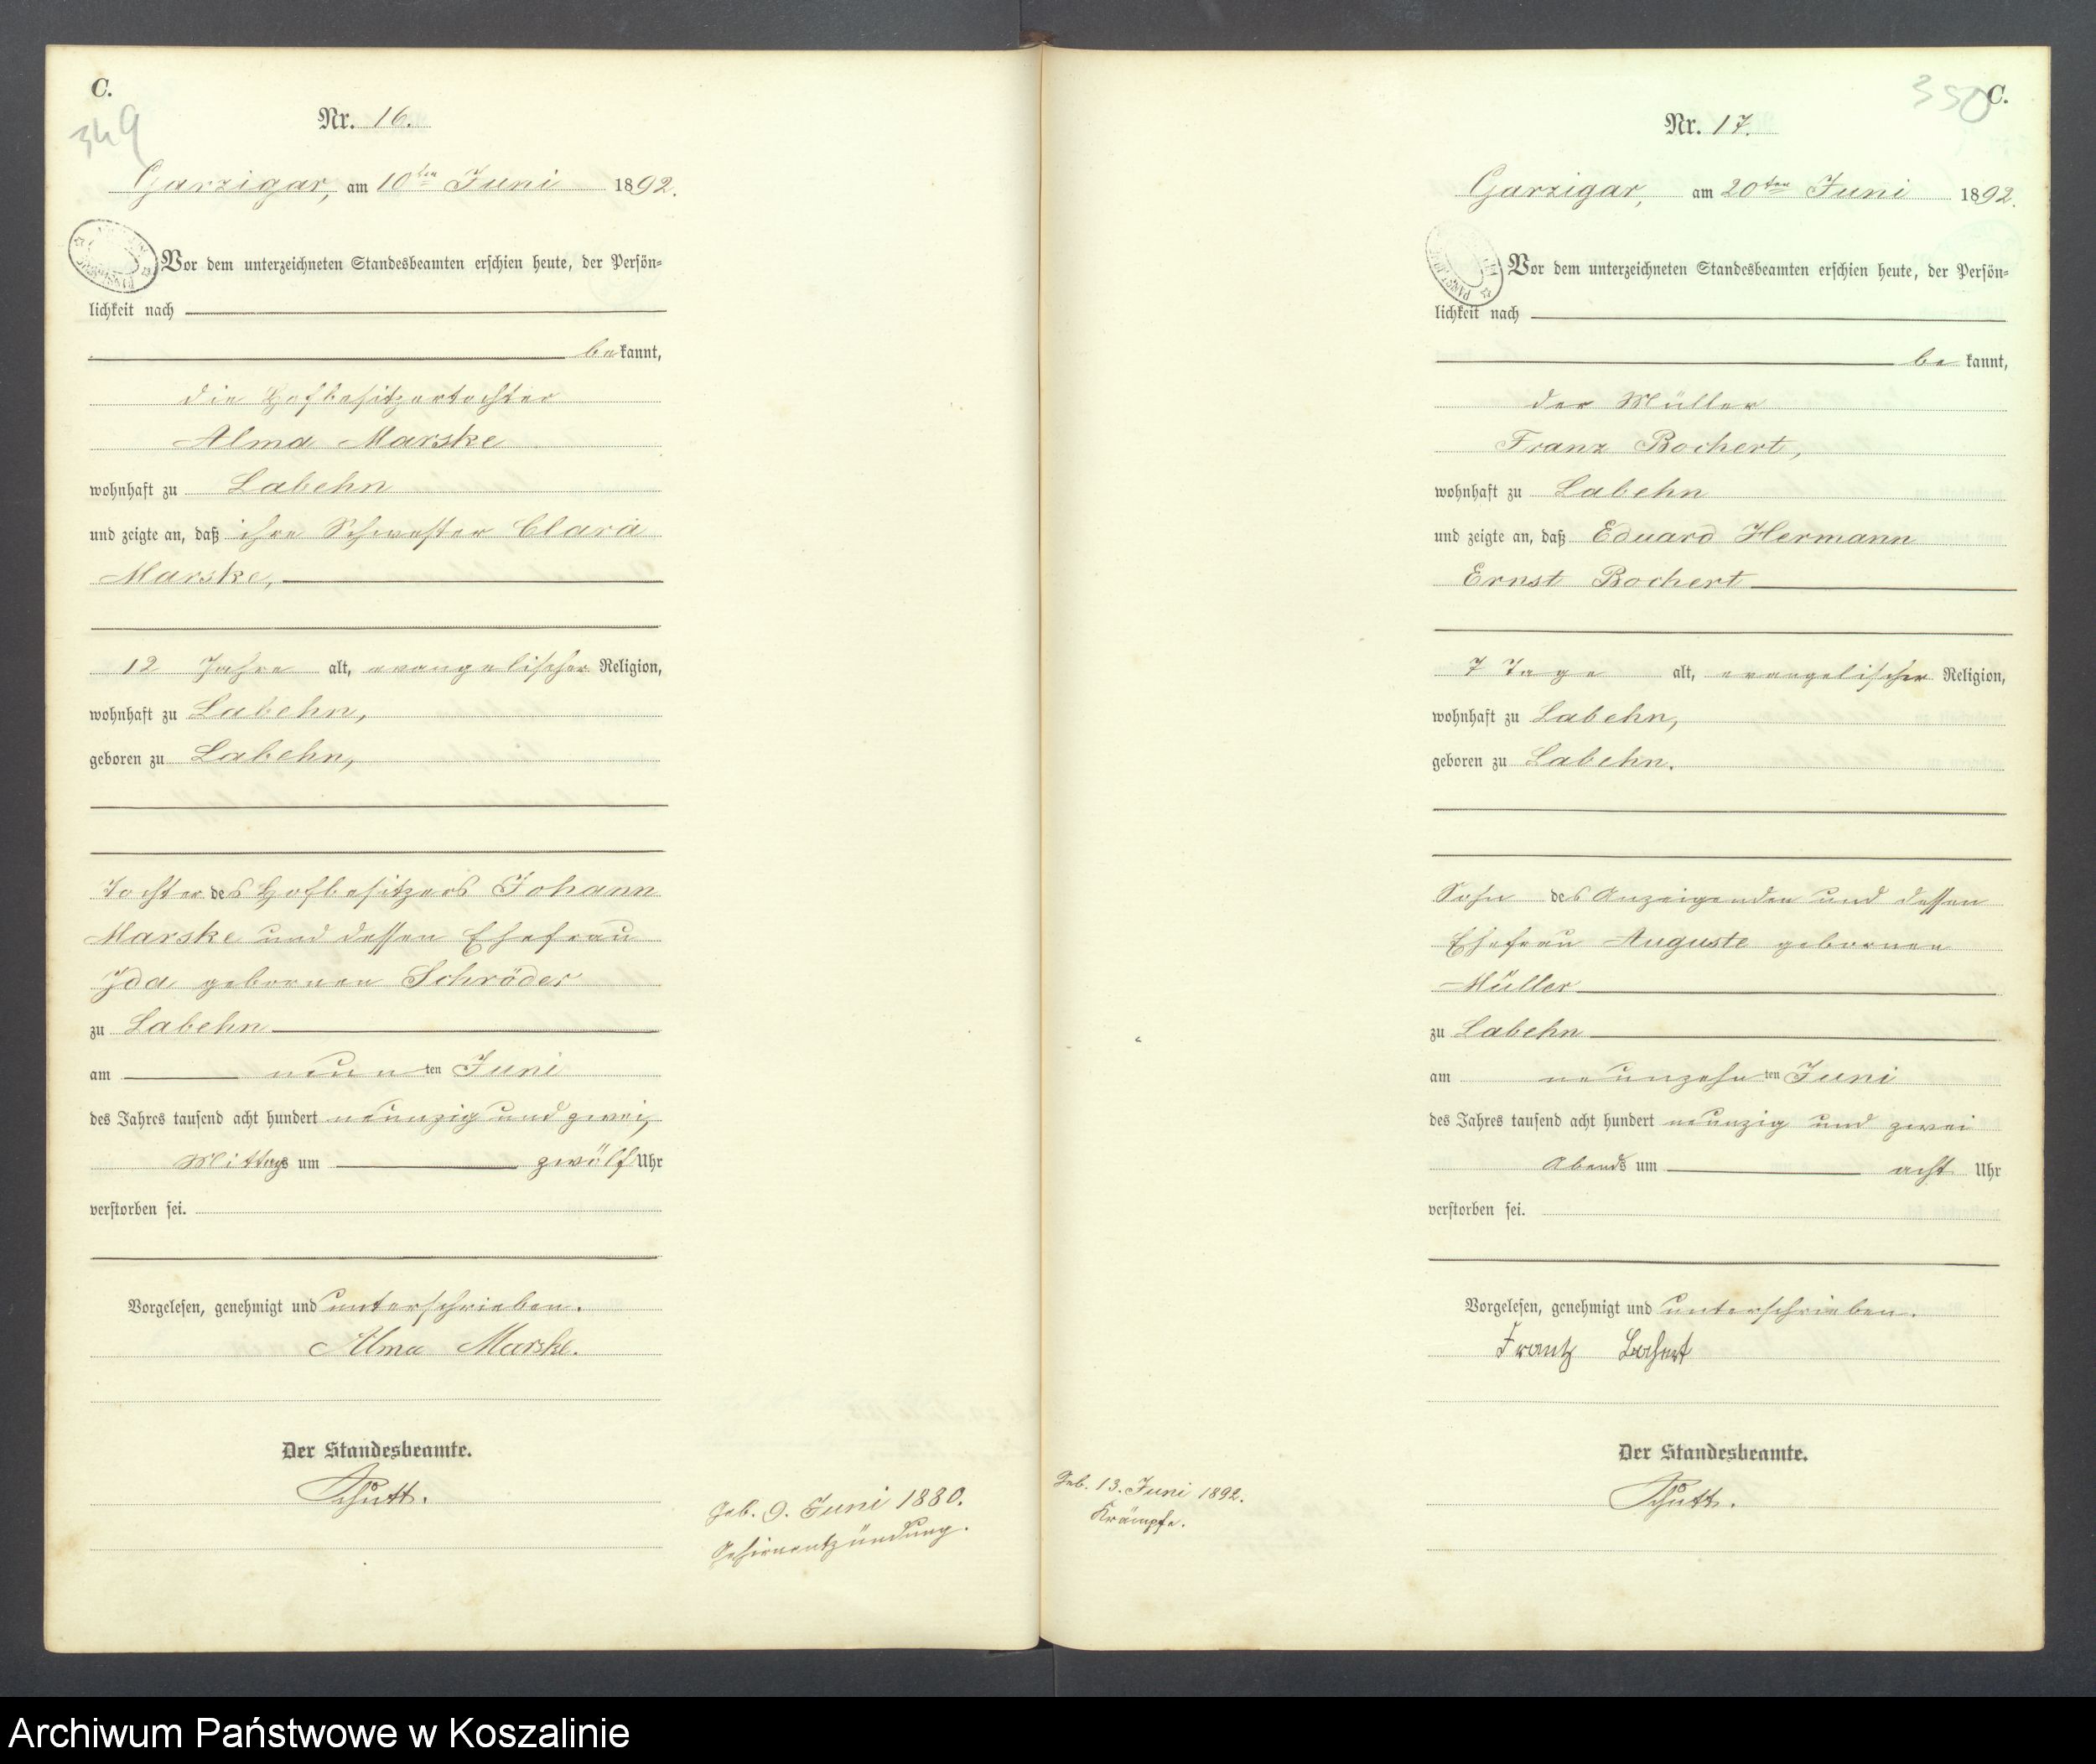 C.
349
Nr. 16.
Garzigar, am 10ten Juni 1892.
Vor dem unterzeichneten Standesbeamten erschien heute, der Persön-
lichkeit nach
bekannt,
die Hofbesitzertochter
Alma Marske
wohnhaft zu Labehn
und zeigte an, daß ihre Schwester Clara
Marske,
12 Jahre alt, evangelischer Religion,
wohnhaft zu Labehn,
geboren zu Labehn,
Tochter des Hofbesitzers Johann
Marske und dessen Ehefrau
Ida gebornen Schröder
zu Labehn
am neunten Juni
des Jahres tausend acht hundert neunzig und zwei,
Mittags um zwölf Uhr
verstorben sei.
Vorgelesen, genehmigt und unterschrieben.
Alma Marske.
Der Standesbeamte.
Schutt.
Geb. 9. Juni 1880.
Gehirnentzündung.
350
C.
Nr. 17.
Garzigar, am 20ten Juni 1892.
Vor dem unterzeichneten Standesbeamten erschien heute, der Persön-
lichkeit nach
be kannt,
der Müller
Franz Bochert,
wohnhaft zu Labehn
und zeigte an, daß Eduard Hermann
Ernst Bochert
7 Tage alt, evangelischer Religion,
wohnhaft zu Labehn,
geboren zu Labehn.
Sohn des Anzeigenden und dessen
Ehefrau Auguste gebornen
Müller
zu Labehn
am neunzehnten Juni
des Jahres tausend acht hundert neunzig und zwei
Abends um acht Uhr
verstorben sei.
Vorgelesen, genehmigt und unterschrieben.
Frantz Bochert
Der Standesbeamte.
Schutt.
Geb. 13. Juni 1892.
Krämpfe.
Archiwum Państwowe w Koszalinie